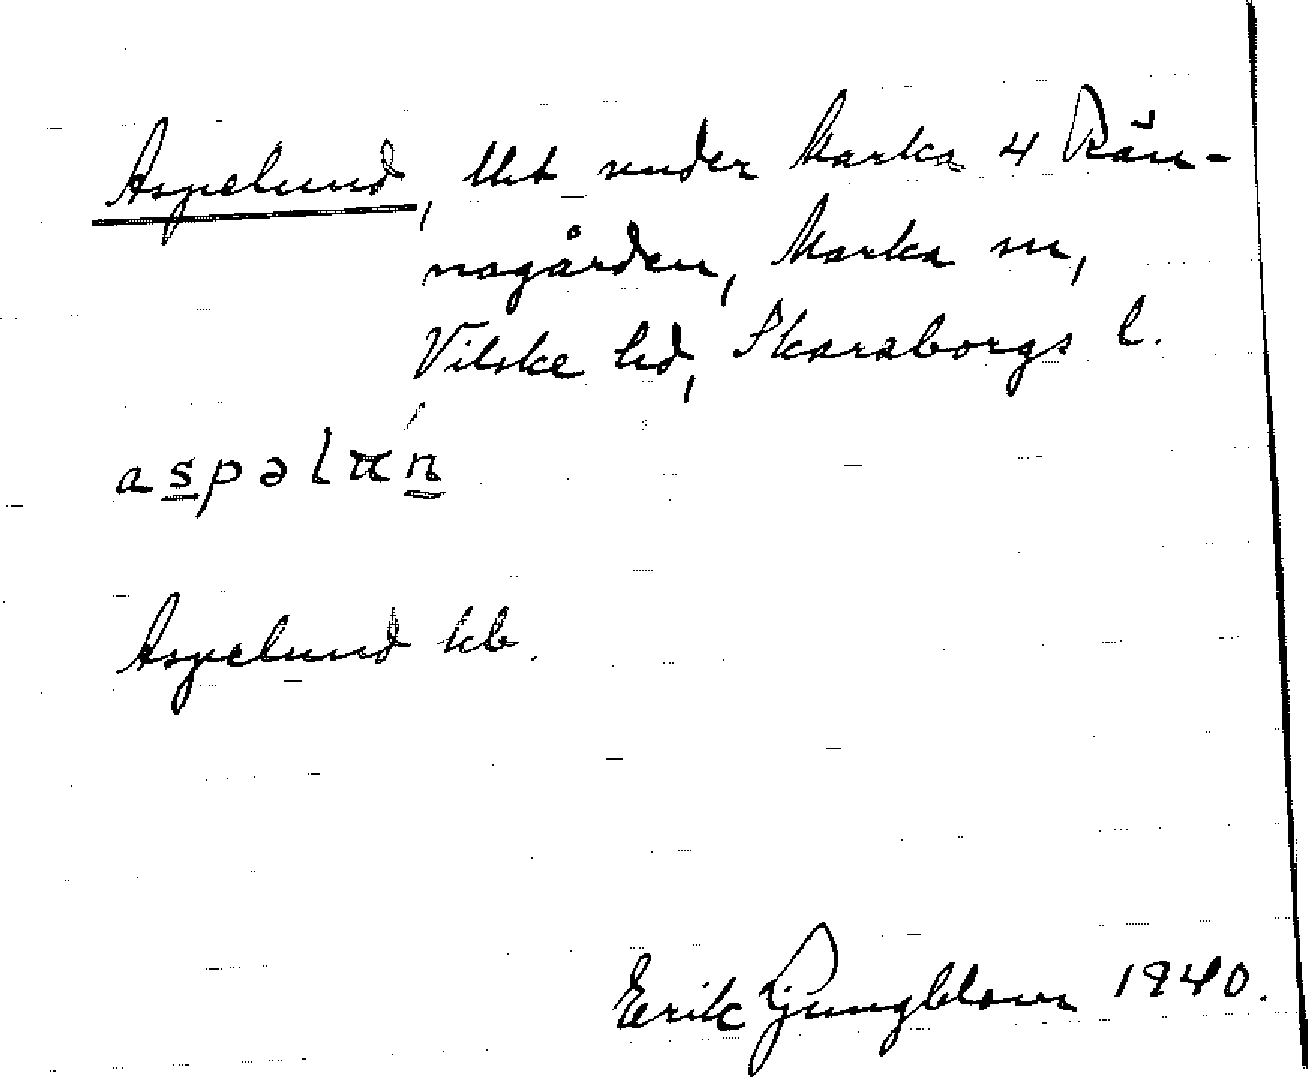 Aspelund, lht under Marka 4 Rän-
nagården, Marka sn,
Vilske hd, Skaraborgs l.
aspəlun
Aspelund kb.
Erik Ljungblom 1940.